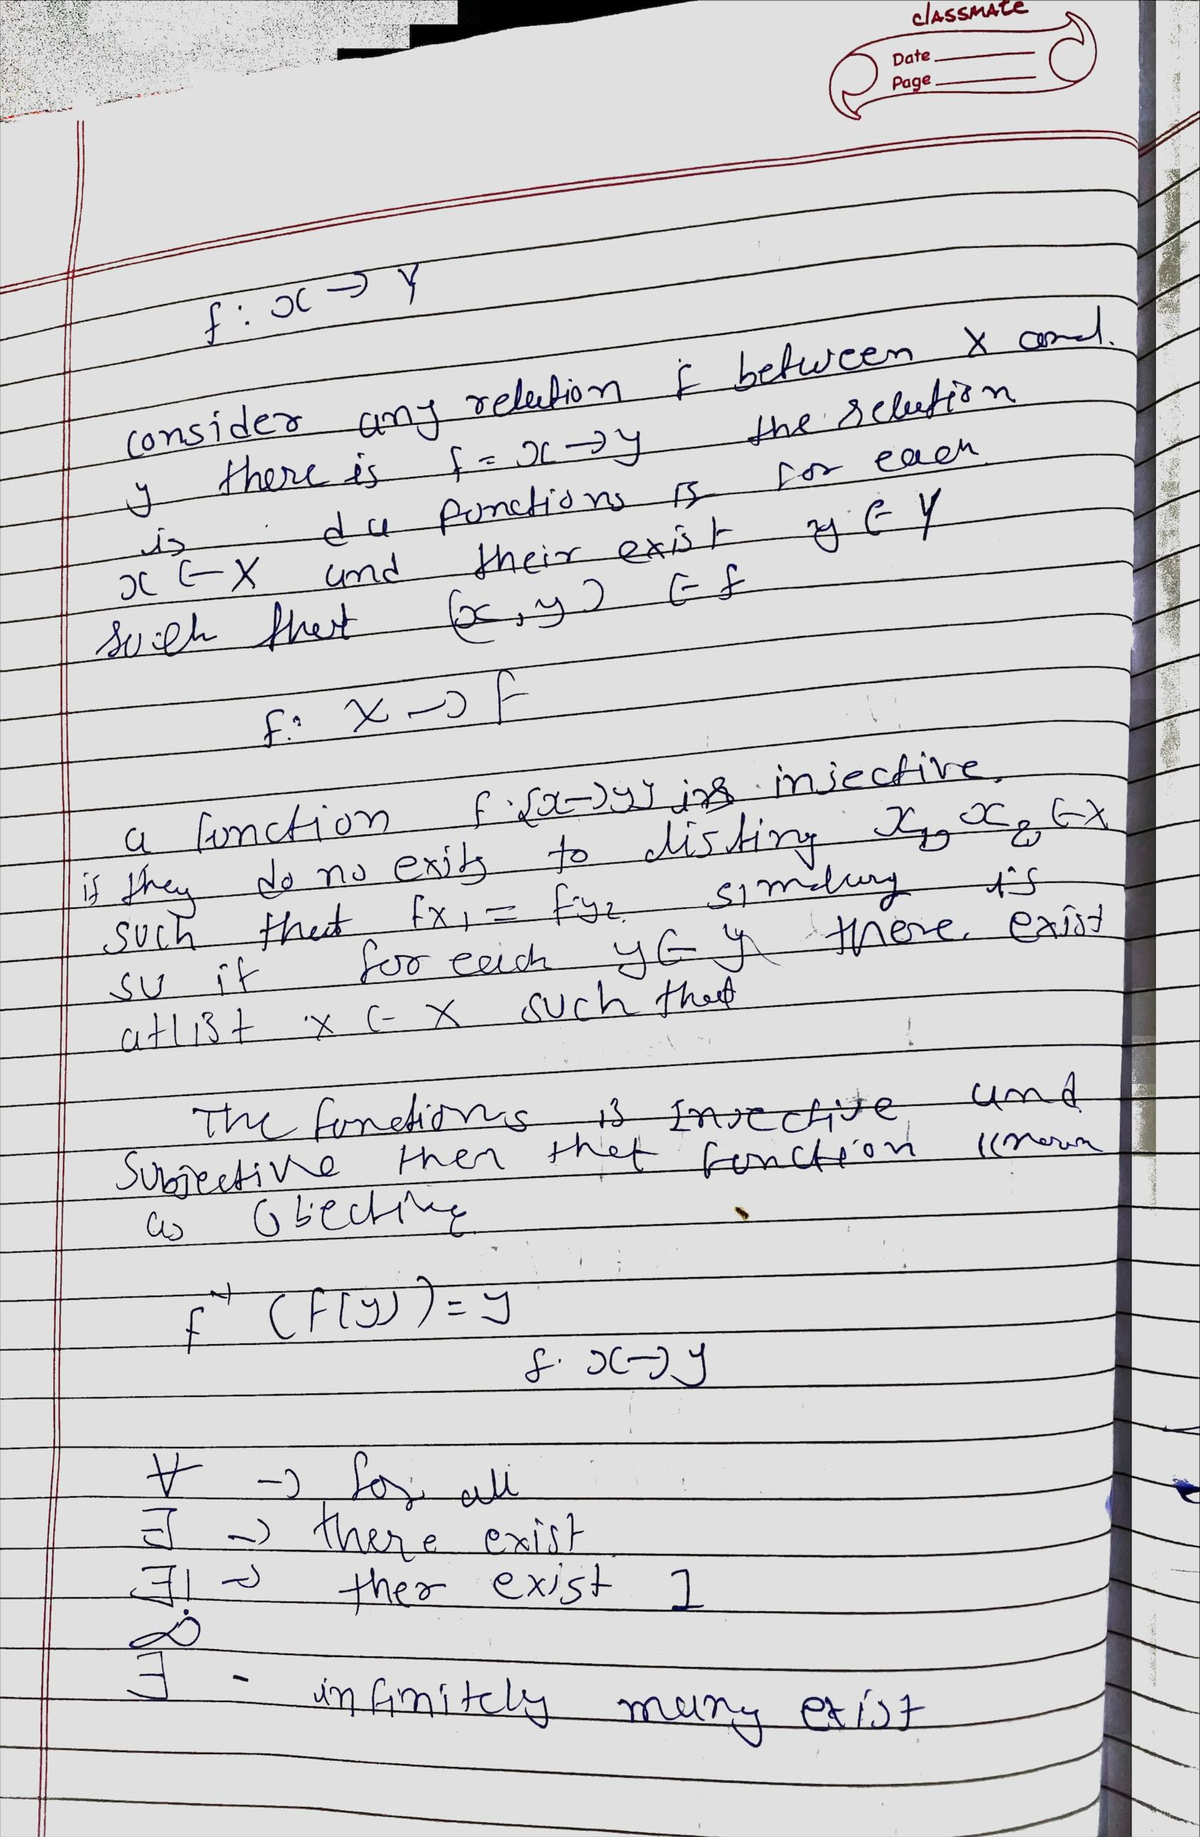 classmate
Date
Page
f : x → Y
consider any relution f between X and.
y there is f = x → y the relution
is d a functions is for each
x ∈ X und their exist y ∈ Y
such that (x, y) ∈ f
f: X → f
a function f : {x → y} is injective.
if they do no exits to disting x1, x2 ∈ X
such that fx1 = fy2. simdury is
su if for each y ∈ y there. exist
atlist x ∈ X such that
The functions is Invective und
Subjective then that function known
as Objective
f⁻¹ (F(y)) = y
f. x → y
∀ → for all
∃ → there exist
∃! → ther exist 1
∞
∃ - infinitely many exist